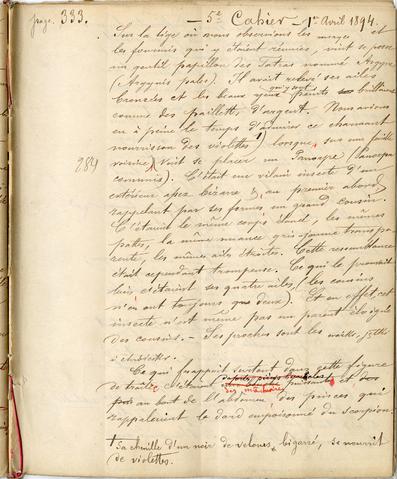 page. 333.
— 5e Cahier — 1er Avril 1894.
Sur la tige où nous observions les mouches et
les fourmis qui y étaient réunies, vint se poser
un gentil papillon des Tatras nommé Argyne
(Argynnis pales). Il avait relevé ses ailes
bronzées et les beaux yeux qui y sont peints brillaient
comme des paillettes d'argent. Nous avions
eu à peine le temps d'admirer ce charmant
nourrisson des violettes †, lorsque, sur une feuille
284
voisine, vint se placer un Panorpe (Panorpa
communis). C'était un vilain insecte d'un
extérieur assez bizarre &, au premier abord,
rappelant par ses formes un grand cousin.
C'étaient le même corps élancé, les mêmes
pattes, la même nuance gris jaune transpa-
rente, les mêmes ailes étroites. Cette ressemblance
était cependant trompeuse. Ce qui le prouvait
bien c'étaient ses quatre ailes, (les cousins
n'en ont toujours que deux). Et en effet, cet
insecte n'est même pas un parent éloigné
des cousins. — Ses proches sont les
Ce qui frappait surtout dans cette figure
étrange c'étaient puissantes et
au bout de l'abdomen des pinces qui
rappelaient le dard empoisonné du scorpion.
† Sa chenille d'un noir de velours, bigarré, se nourrit
de violettes.